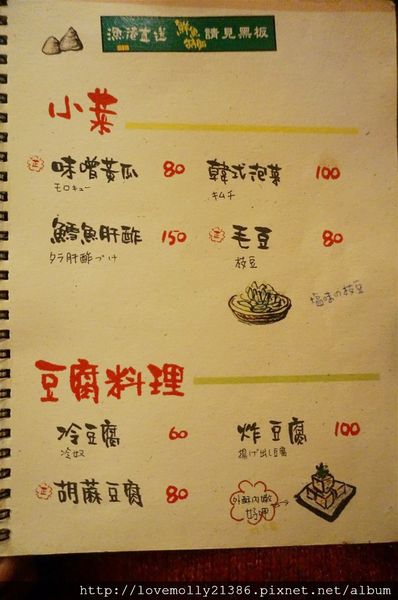 漁港直送 鮮魚 請見黑板
小菜
味噌黃瓜 80
モロキュー
韓式泡菜 100
キムチ
鱈魚肝酢 150
タラ肝酢づけ
毛豆 80
枝豆
塩味の枝豆
豆腐料理
冷豆腐 60
冷奴
炸豆腐 100
揚げ出し豆腐
胡蔴豆腐 80
外酥內嫩
好呷
http://lovemolly21386.pixnet.net/album